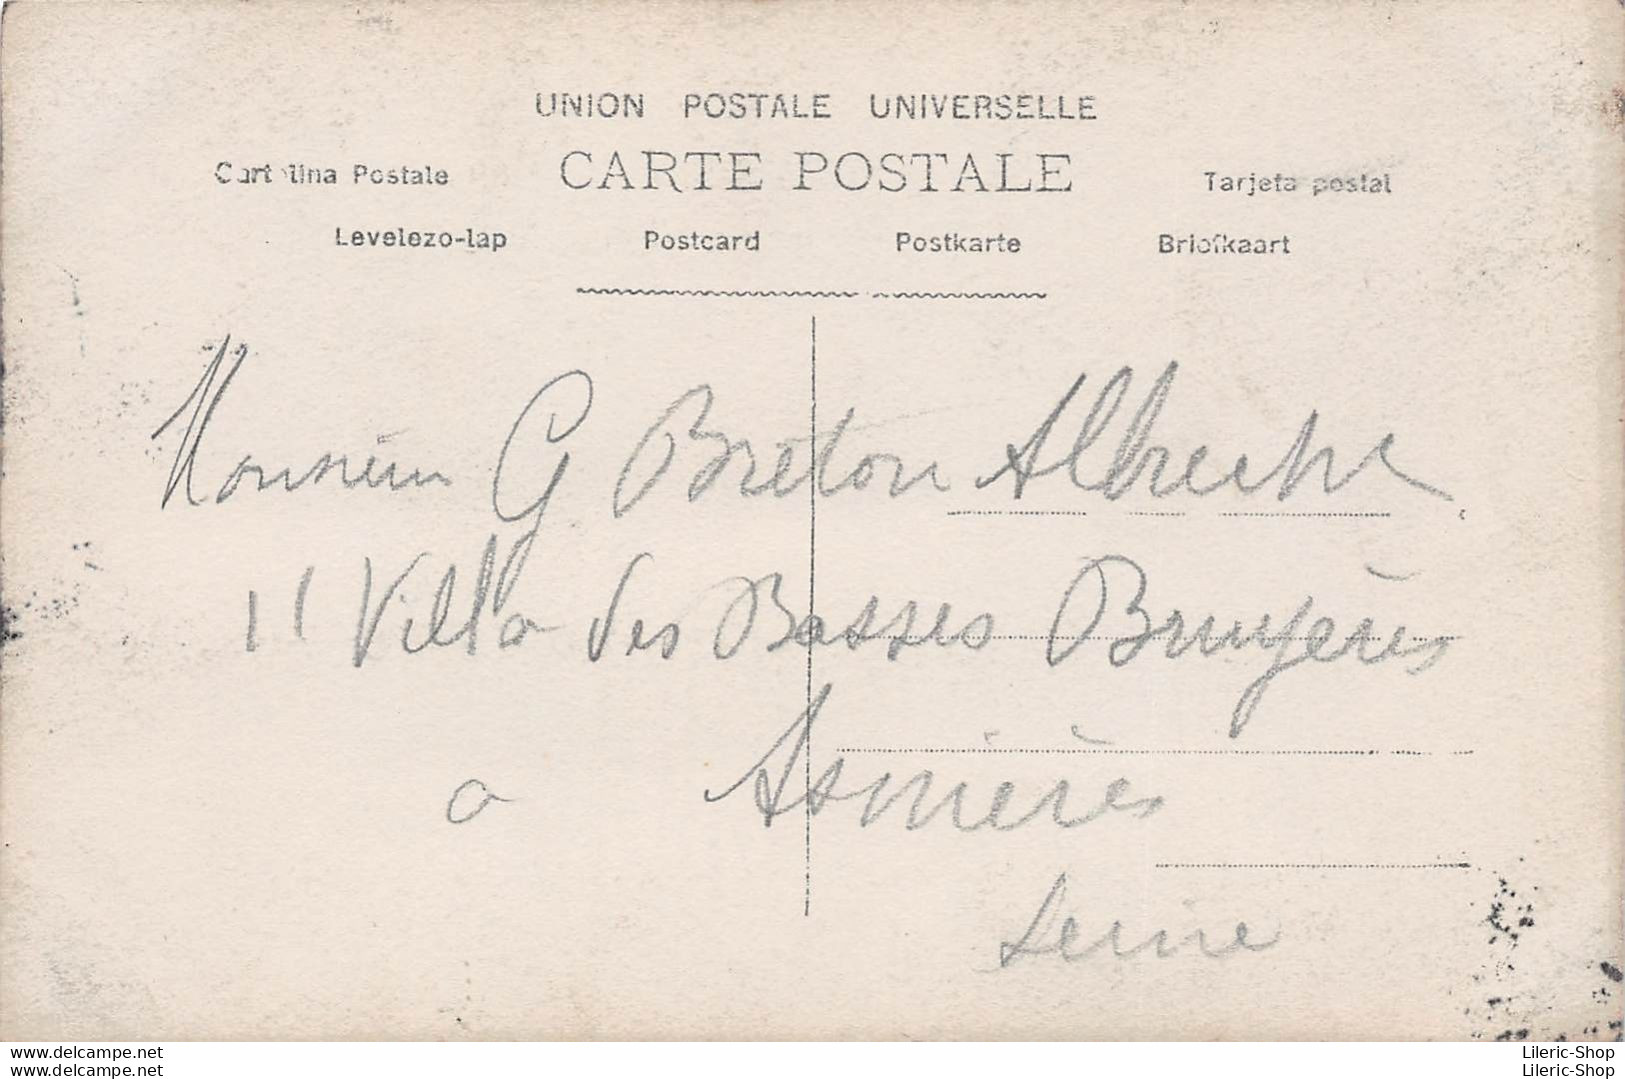 UNION POSTALE UNIVERSELLE
Cartolina Postale CARTE POSTALE Tarjeta postal
Levelezo-lap Postcard Postkarte Briefkaart
Monsieur G Breton Albrecht
11 Villa des Basses Bruyères
a Asnières
Seine
lileric (delcampe.net) Lileric-Shop
lileric (delcampe.net) Lileric-Shop